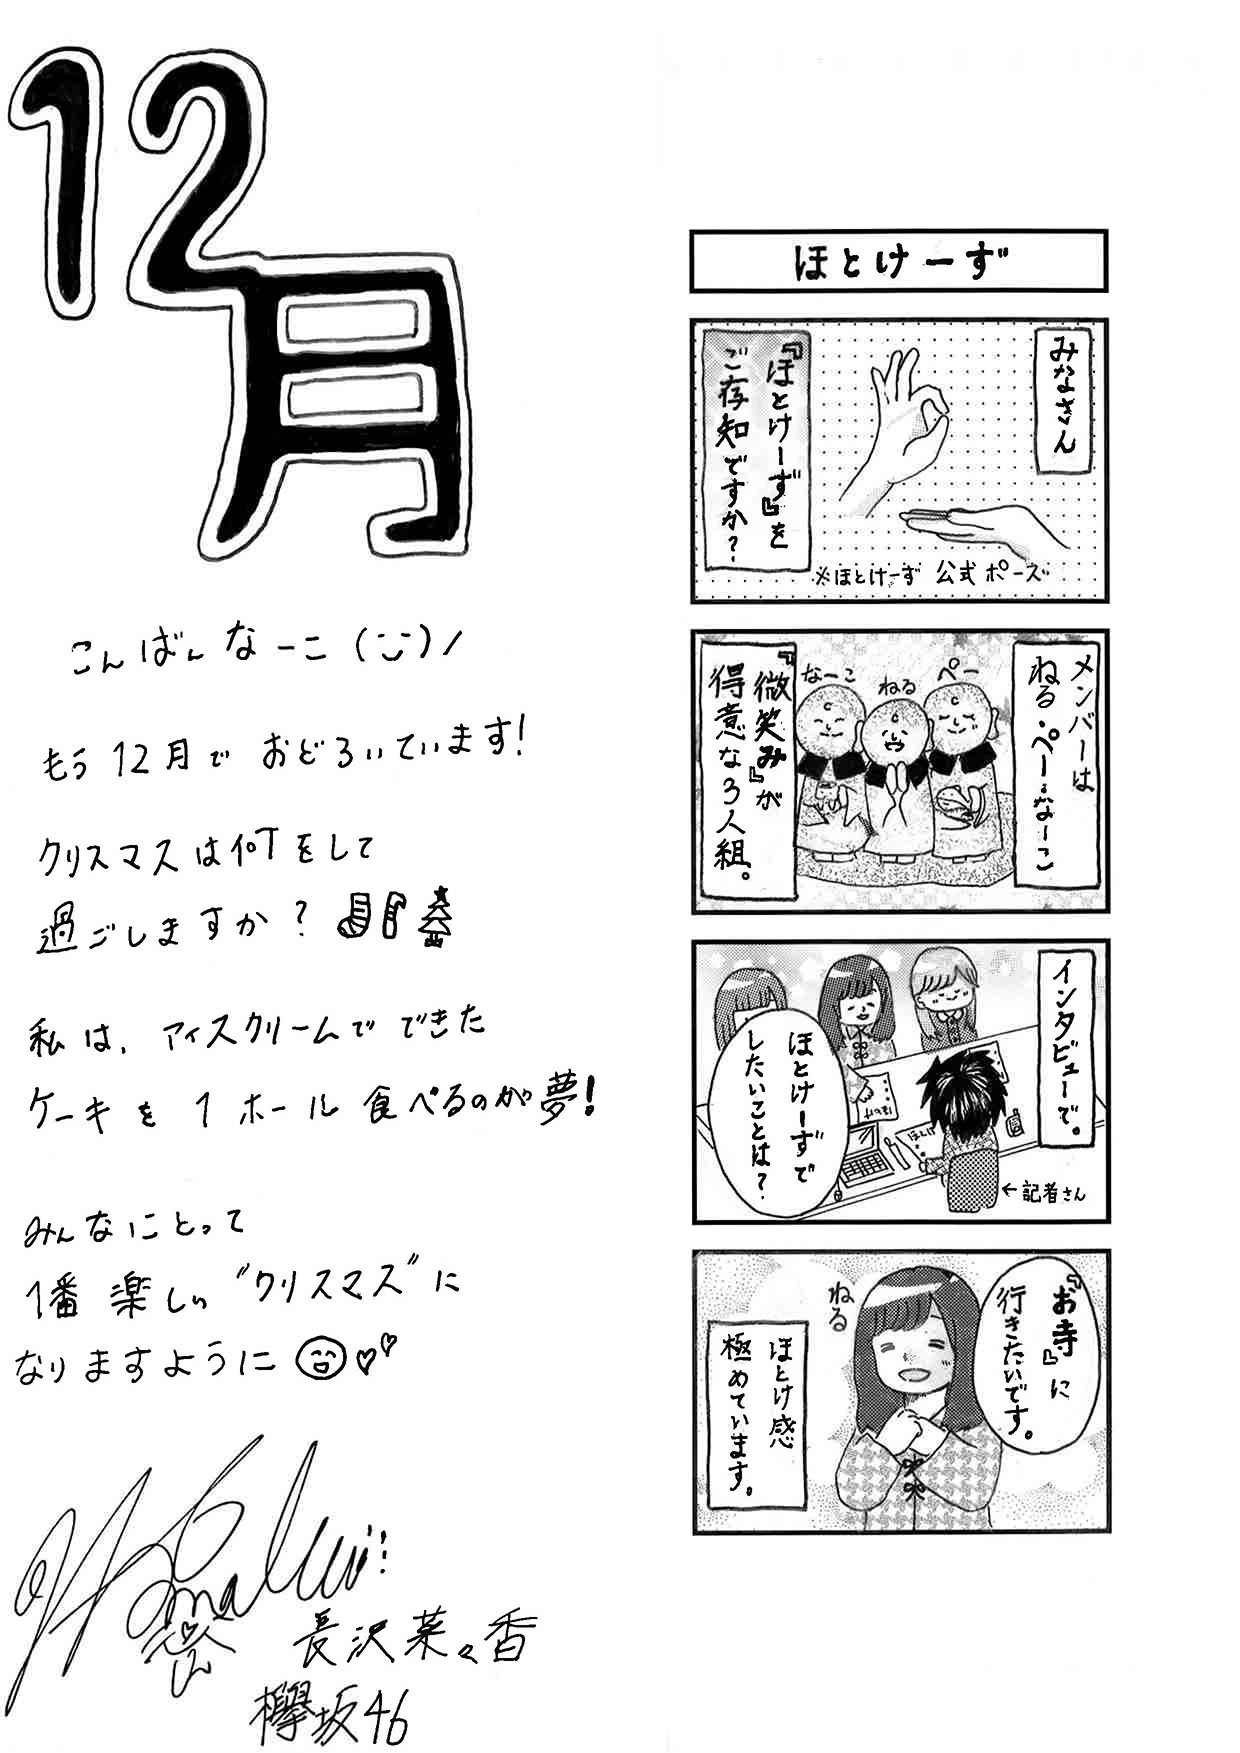 12月
こんばんなーこ(:;)ノ
もう12月でおどろいています!
クリスマスは何をして
過ごしますか?
私は、アイスクリームでできた
ケーキを1ホール食べるのが夢!
みんなにとって
1番楽しい"クリスマス"に
なりますように
長沢菜々香
欅坂46
ほとけーず
みなさん
『ほとけーず』を
ご存知ですか?
※ほとけーず 公式ポーズ
メンバーは
ねる・ぺー・なーこ
ぺー
ねる
なーこ
『微笑み』が
得意な3人組。
インタビューで。
ほとけーずで
したいことは?
ほとけ
←記者さん
『お寺』に
行きたいです。
ねる
ほとけ感
極めています。